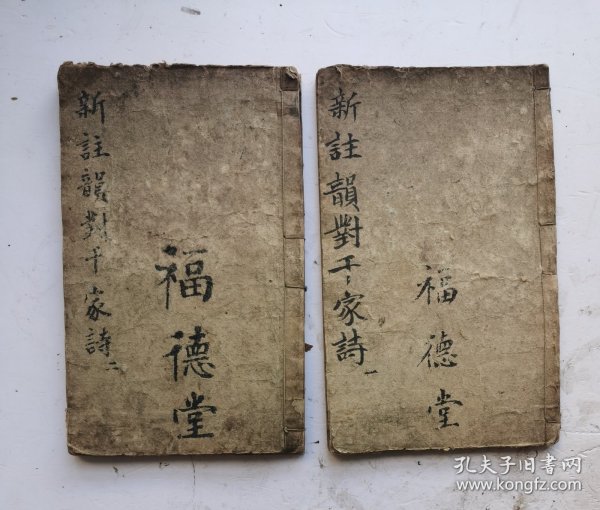 新註韻對千家詩二
福德堂
新註韻對千家詩一
福德堂
孔夫子旧书网
www.kongfz.com